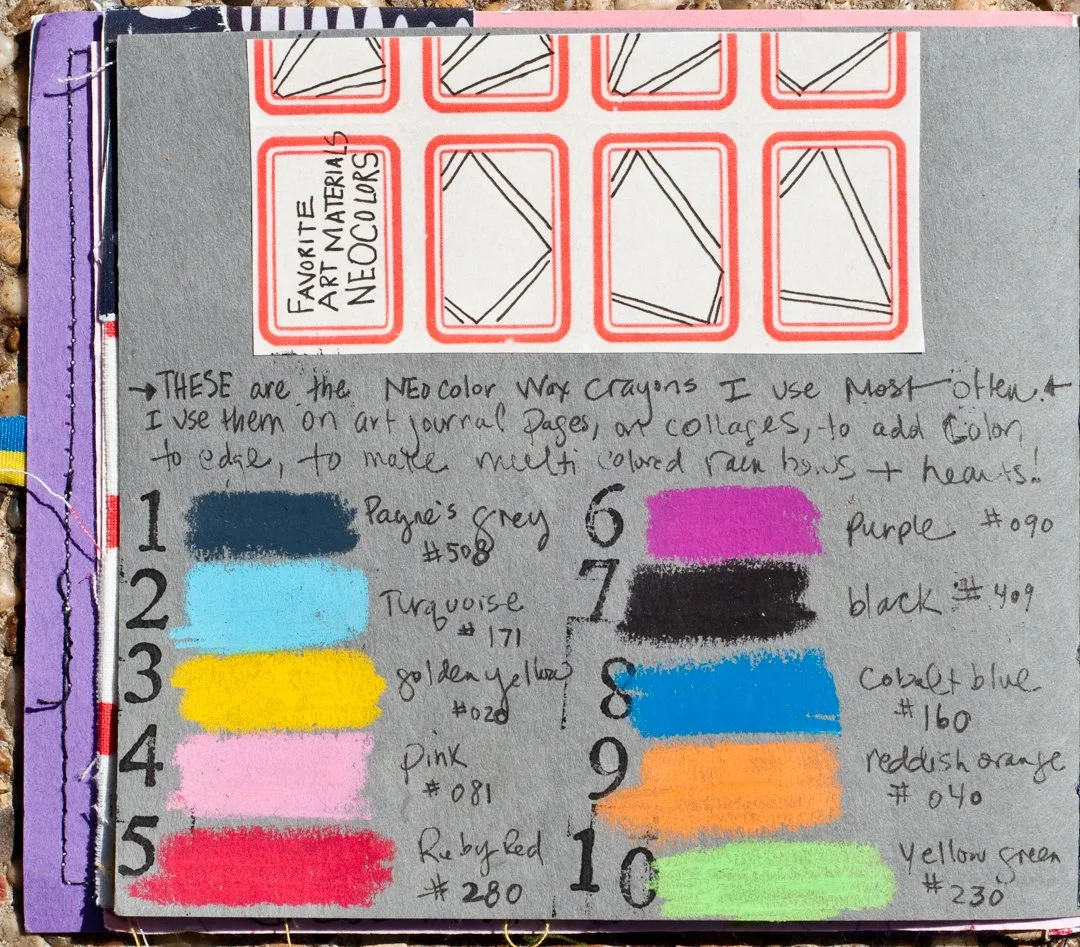 FAVORITE
ART MATERIALS
NEOCOLORS
→THESE are the NEOcolor Wax Crayons I use Most often.←
I use them on art journal Pages, on collages, to add Color,
to edge, to make multi colored rain bows + hearts!
1 Payne's grey
#508
2 Turquoise
#171
3 golden yellow
#020
4 pink
#081
5 Ruby Red
#280
6 purple #090
7 black #409
8 Cobalt blue
#160
9 reddish orange
#040
10 Yellow green
#230